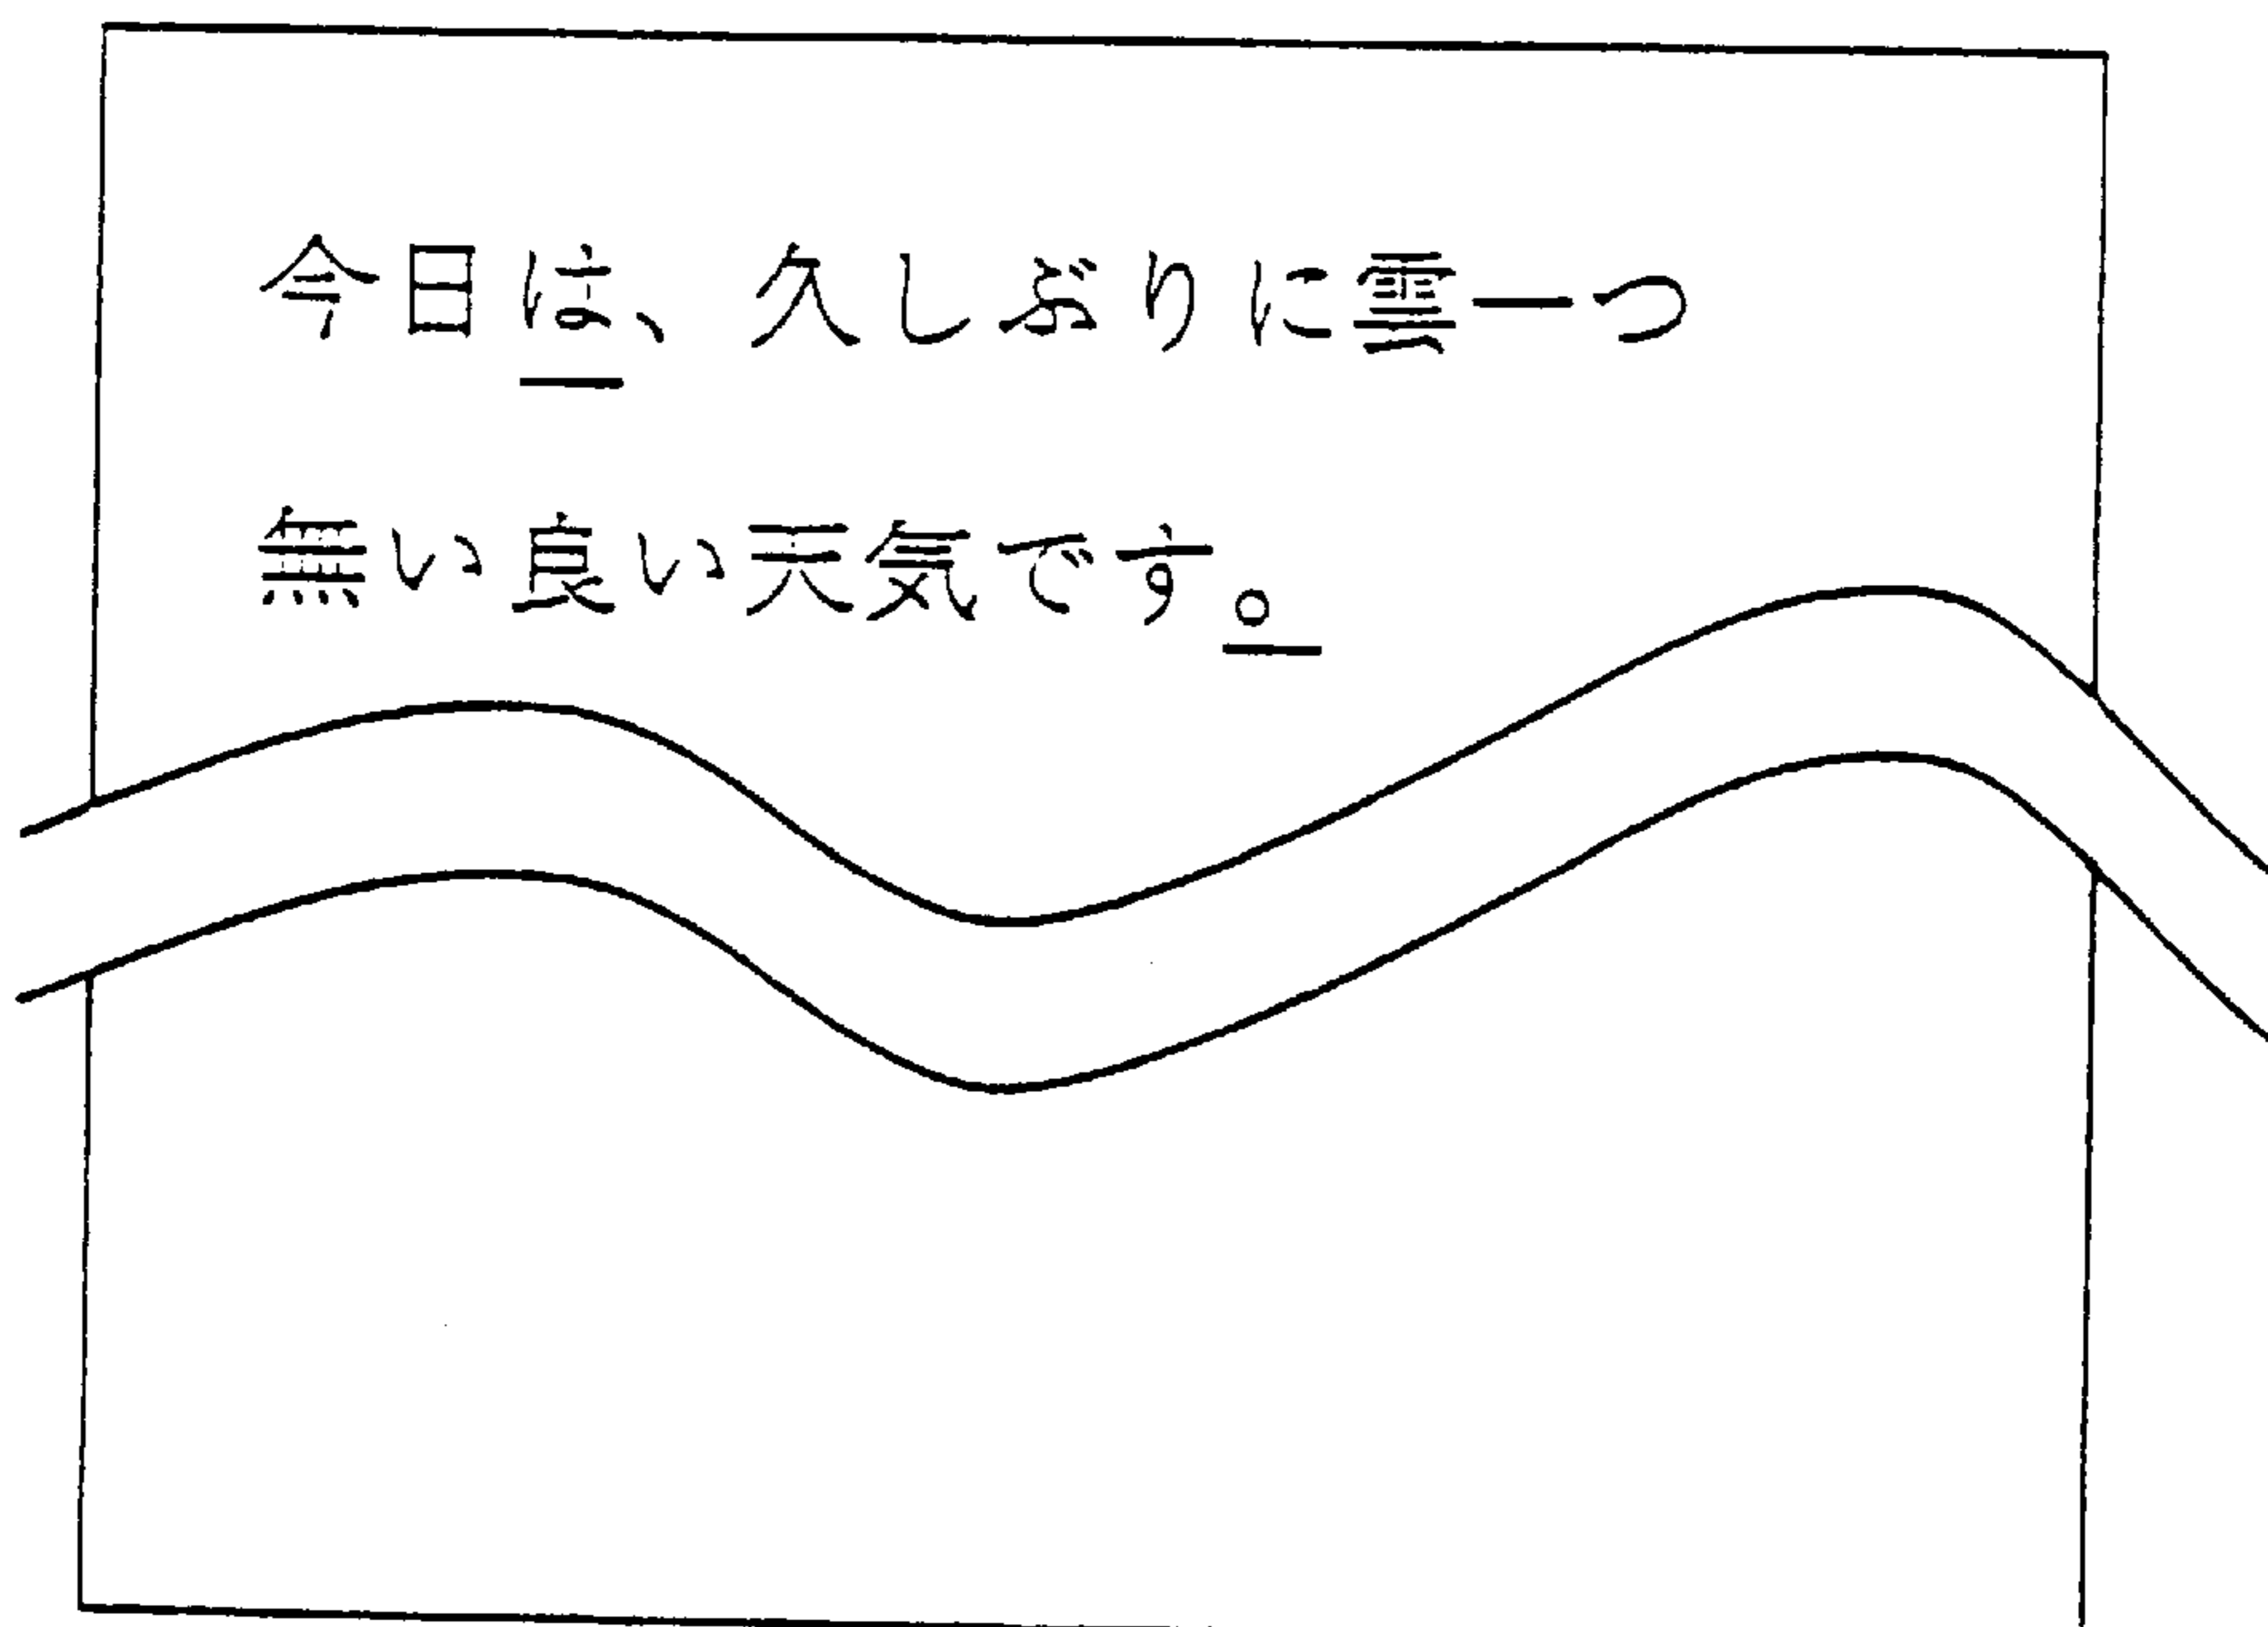 今日は、久しぶりに雲一つ
無い良い天気です。